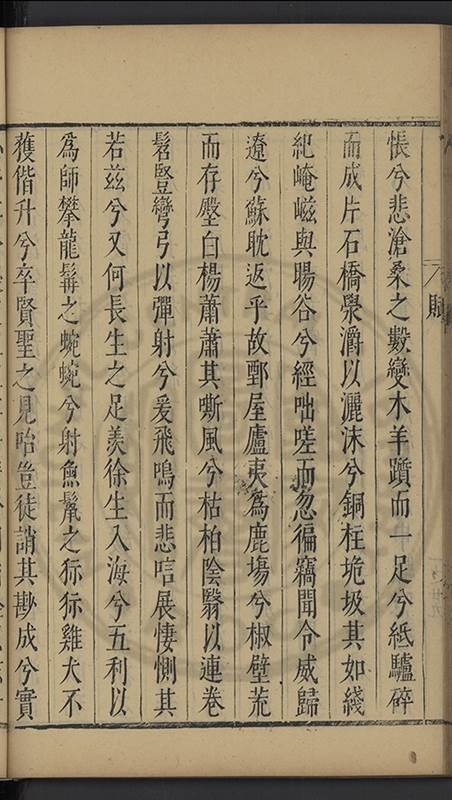 賦
悵兮悲滄桑之數變木羊躓而一足兮紙驢碎
而成片石橋濙灂以灑沫兮銅柱垝圾其如綫
紀崦嵫與暘谷兮經咄嗟而忽徧竊聞令威歸
遼兮蘇耽返乎故鄄屋廬夷為鹿場兮椒壁荒
而存壂白楊蕭蕭其嘶風兮枯柏陰翳以連卷
髫豎彎弓以彈射兮爰飛鳴而悲唁展悽惻其
若茲兮又何長生之足羨徐生入海兮五利以
為師攀龍髯之蜿蜿兮射魚鬣之狋狋雞犬不
獲偕升兮卒賢聖之見咍豈徒誚其尠成兮實